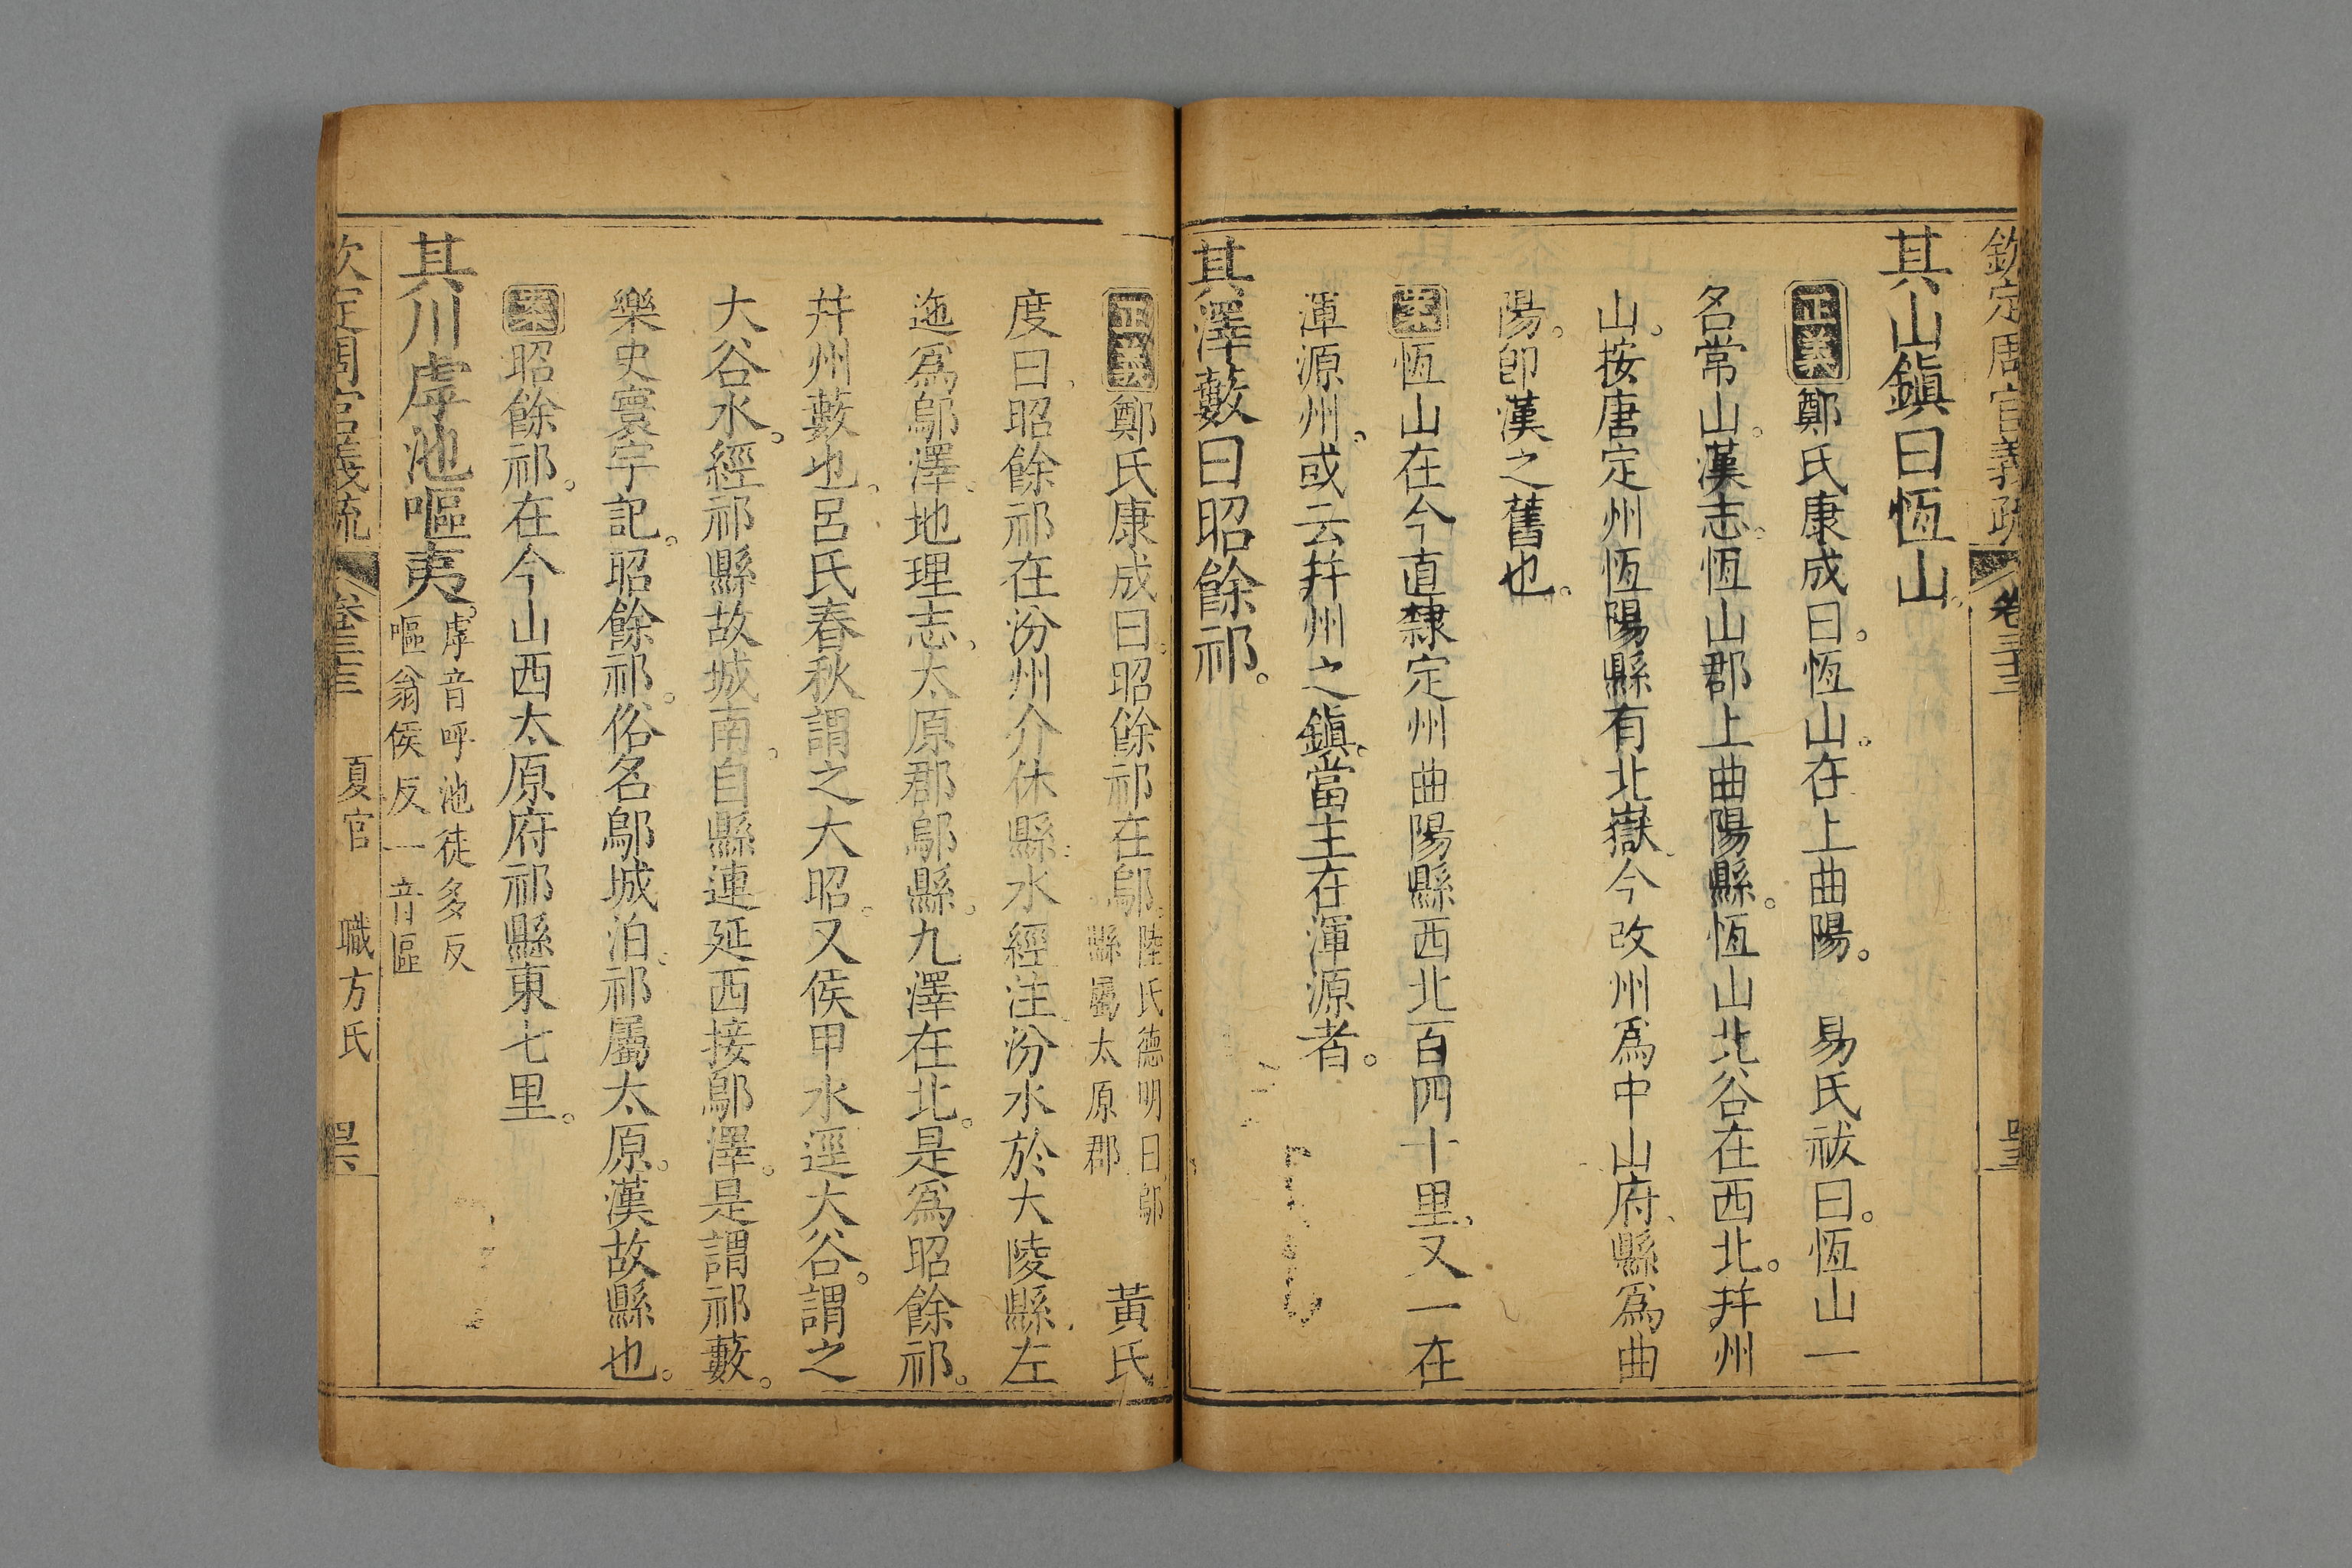 欽定周官義疏 卷三十三
其山鎮曰恆山。
正義鄭氏康成曰。恆山。在上曲陽。 易氏祓曰。恆山一
名常山。漢志。恆山郡上曲陽縣。恆山北谷在西北。幷州
山。按唐定州恆陽縣有北嶽今改州爲中山府、縣爲曲
陽。卽漢之舊也。
案恆山在今直隸定州曲陽縣西北百四十里、又一在
渾源州。或云幷州之鎮。當主在渾源者。
其澤藪曰昭餘祁。
正義鄭氏康成曰。昭餘祁在鄔。陸氏德明曰、鄔縣屬太原郡 黃氏
度曰、昭餘祁在汾州介休縣、水經注、汾水於大陵縣左
迤爲鄔澤、地理志、太原郡鄔縣。九澤在北。是爲昭餘祁。
幷州藪也。呂氏春秋謂之大昭。又侯甲水逕大谷。謂之
大谷水。經祁縣故城南。自縣連延西接鄔澤。是謂祁藪。
樂史寰宇記。昭餘祁。俗名鄔城泊。祁屬太原。漢故縣也。
案昭餘祁。在今山西太原府祁縣東七里。
其川虖池嘔夷。虖音呼池徒多反嘔翁侯反一音區
欽定周官義疏 卷三十三 夏官 職方氏 四六